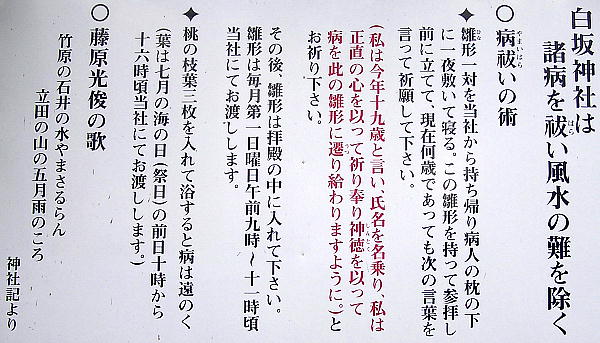 白坂神社は
諸病を祓い風水の難を除く
○病祓いの術
✦雛形一対を当社から持ち帰り病人の枕の下
に一夜敷いて寝る。この雛形を持って参拝し
前に立てて、現在何歳であっても次の言葉を
言って祈願して下さい。
(私は今年十九歳と言い、氏名を名乗り、私は
正直の心を以って祈り奉り神徳を以って
病を此の雛形に遷り給わりますように。)と
お祈り下さい。
その後、雛形は拝殿の中に入れて下さい。
雛形は毎月第一日曜日午前九時～十一時頃
当社にてお渡しします。
✦桃の枝葉三枚を入れて浴すると病は遠のく
(葉は七月の海の日(祭日)の前日十時から
十六時頃当社にてお渡しします。)
○藤原光俊の歌
竹原の石井の水やまさるらん
立田の山の五月雨のころ
神社記より